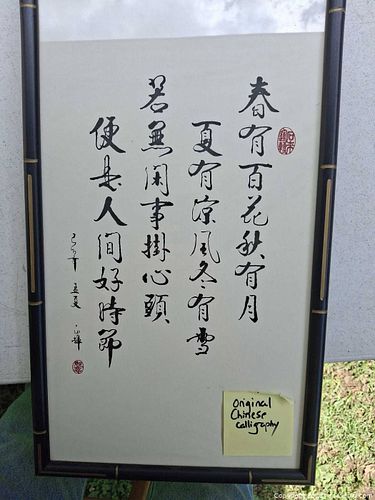 春有百花秋有月
夏有涼風冬有雪
若無閑事掛心頭
便是人间好時節
original
Chinese
calligraphy